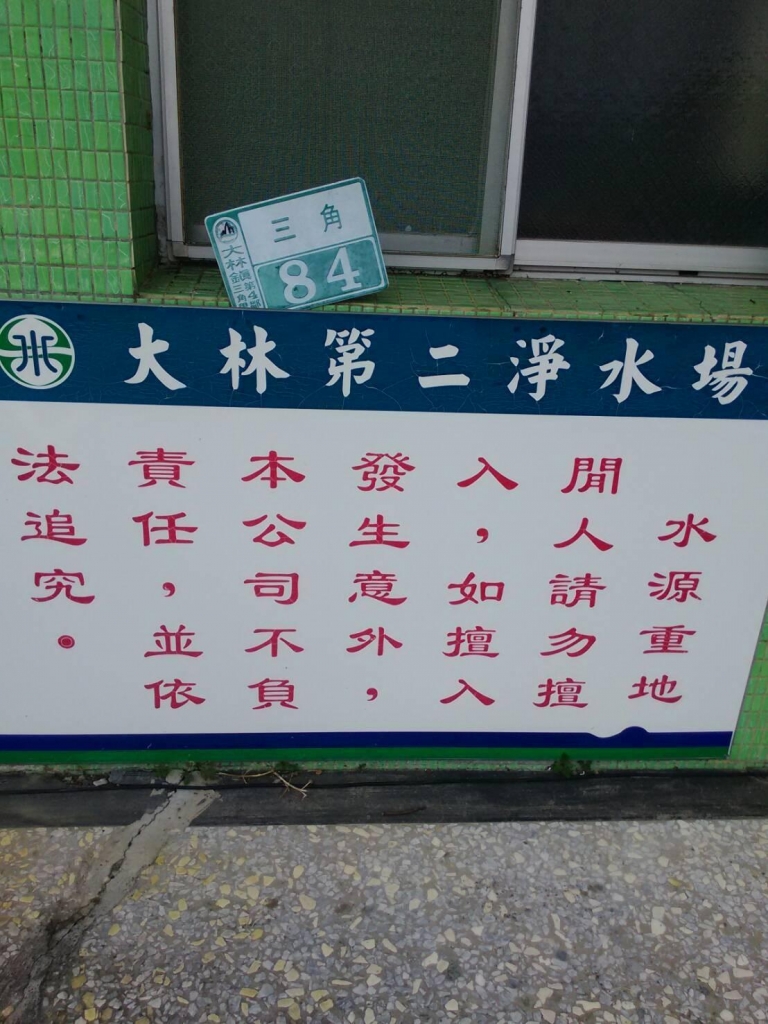 三角
84
大林鎮三角里第4鄰
大林第二淨水場
水源重地
閒人請勿擅
入，如擅入
發生意外，
本公司不負
責任，並依
法追究。